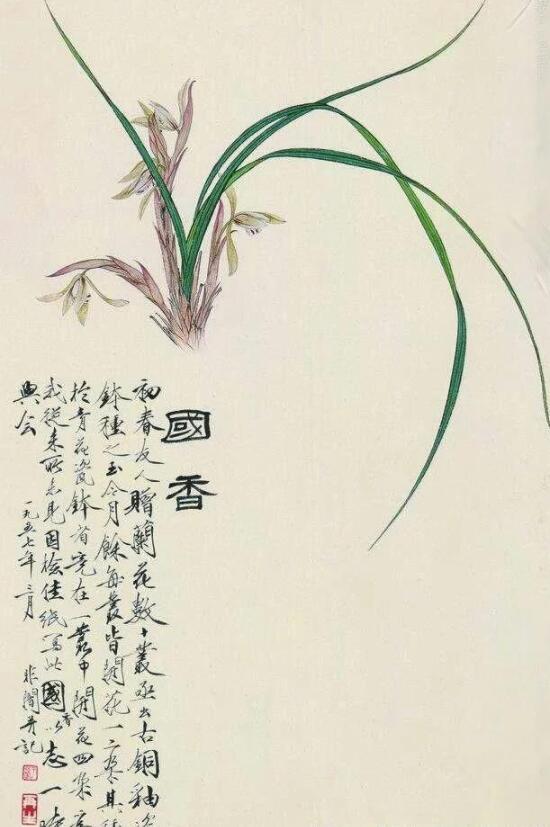 國香
初春友人贈蘭花數十叢亟出古銅釉瓷
鉢種之至今月餘每叢皆開花一二朵其種
於青花瓷鉢者竟在一叢中開花四朵
我從來所未見因檢佳紙寫此國香以志一時
興會
一九五七年三月
非闇并記